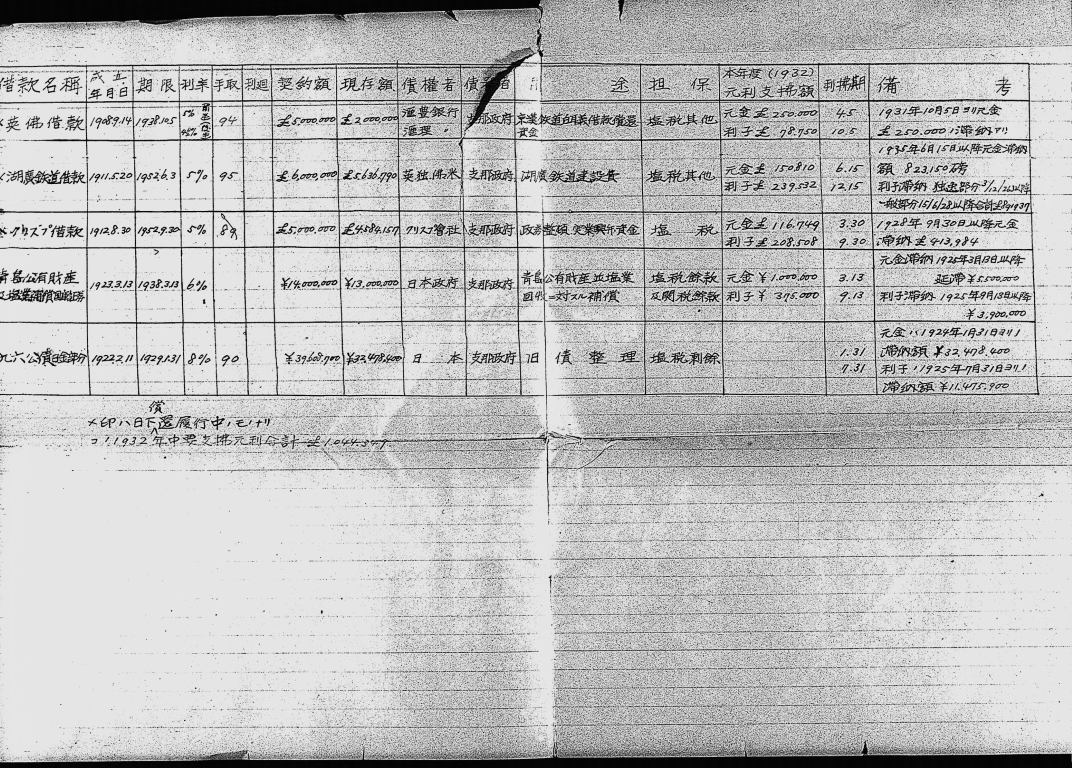 借款名稱 成立年月日 期限 利率 手取 利廻 契約額 現存額 債權者 途 担保 本年度(1932)元利支拂額 利拂期 備考
×英佛借款 1908.9.14 1938.10.5 94 £5,000,000 £2,000,000 滙豊銀行 滙理〃 支那政府 塩税其他 元金£250,000 利子£78,750 4.5 10.5 1931年10月5日ヨリ元金£250,000
×湖廣鉄道借款 1911.5.20 1952.6.3 5% 95 £6,000,000 £5,636,790 英独佛米 支那政府 湖廣鉄道建設費 塩税其他 元金£150,810 利子£239,532 6.15 12.15 1935年6月15日以降元金滞納額 823,150磅
×クリスプ借款 1912.8.30 1952.9.30 5% 89 £5,000,000 £4,584,157 クリスプ會社 支那政府 塩税 元金£116,749 利子£208,508 3.30 9.30 1928年9月30日以降元金滞納£413,984
青島公有財産 1923.3.13 1938.3.13 6% ¥14,000,000 ¥13,000,000 日本政府 支那政府 青島公有財産並塩業回収ニ対スル補償 塩税餘款及関税餘款 元金¥1,000,000 利子¥375,000 3.13 9.13 元金滞納1925年3月13日以降延滞¥5,500,000
利子滞納1925年9月13日以降¥3,900,000
九六公債 1922.2.11 1929.1.31 8% 90 ¥39,608,700 ¥32,478,400 日本 支那政府 旧債整理 塩税剰餘 1.31 7.31 元金ハ1924年1月31日ヨリ滞納額¥32,478,400
利子ハ1925年7月31日ヨリ滞納額¥11,475,900
×印ハ目下償還履行中ノモノナリ
1932年中要支拂元利合計 £1,044,349